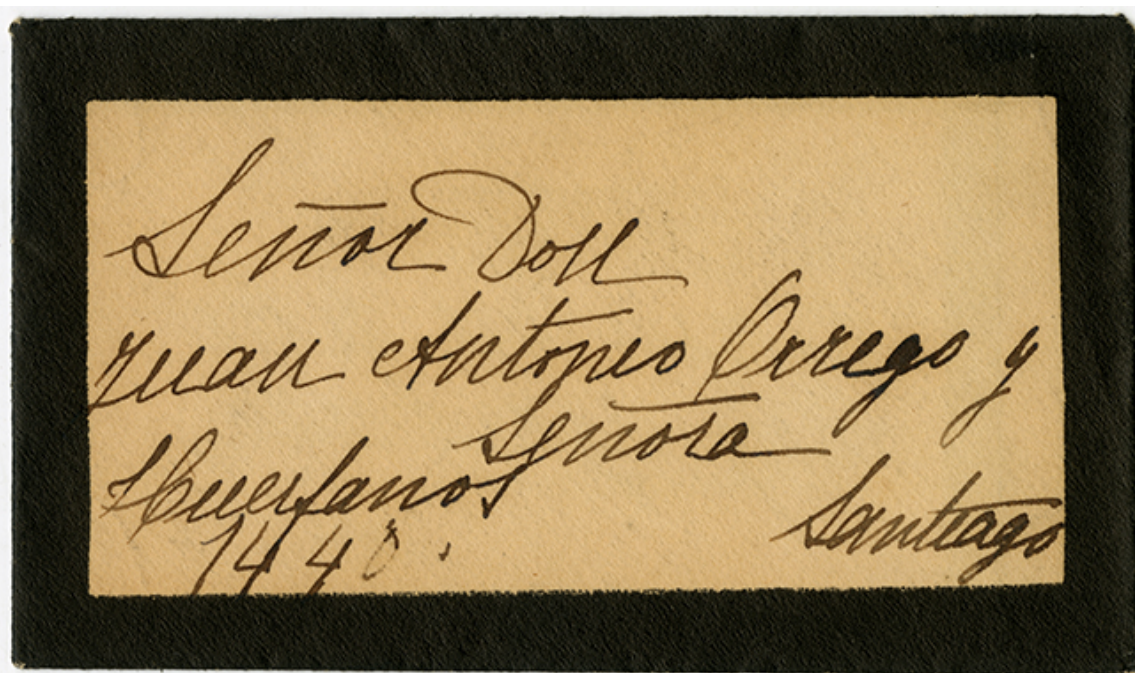 Señor Don
Juan Antonio Orrego y
Señora
Huerfanos
1440.
Santiago